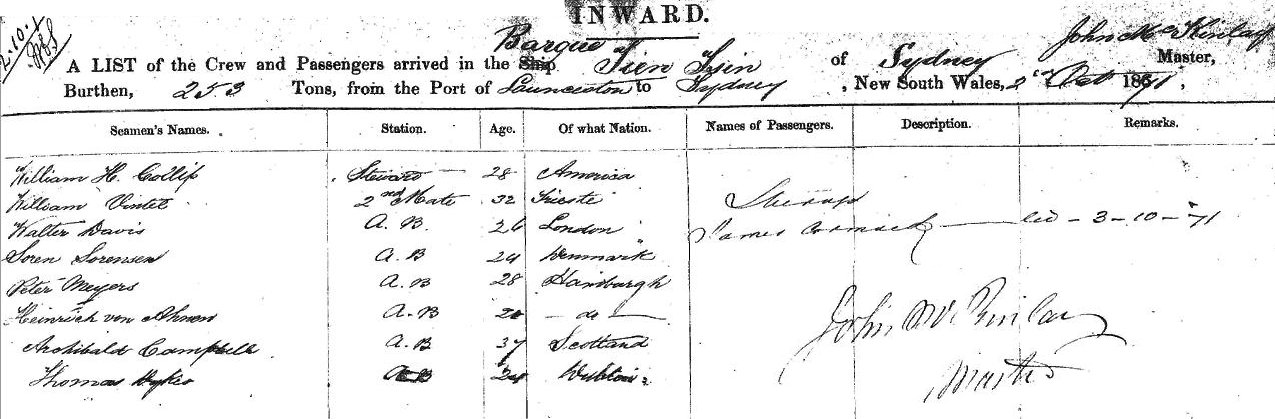 INWARD.
2.10.71
Barque John McKinlay
A LIST of the Crew and Passengers arrived in the Ship Tien Tsin of Sydney Master,
Burthen, 253 Tons, from the Port of Launceston to Sydney , New South Wales, 2nd Oct 1871,
Seamen's Names. Station. Age. Of what Nation. Names of Passengers. Description. Remarks.
William H. Steward 28 America
William 2nd Mate 32 Trieste
Walter Davis A.B. 26 London James
Soren Sorensen A.B 24 Denmark - 3-10-71
Peter Meyers A.B 28 Hamburgh
Heinrich von Ahnen A.B - do -
Archibald Campbell A.B 37 Scotland
Thomas Dykes AB
John McKinlay
Master